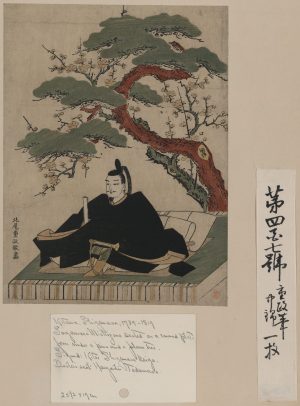 北尾重政敬畫
第四百七號
重政筆
一枚
Kitao Shigemasa, 1739-1819
Sugawara Michizane seated on a raised plat-
form under a pine and a plum tree.
Signed: Kitao Shigemasa keiga.